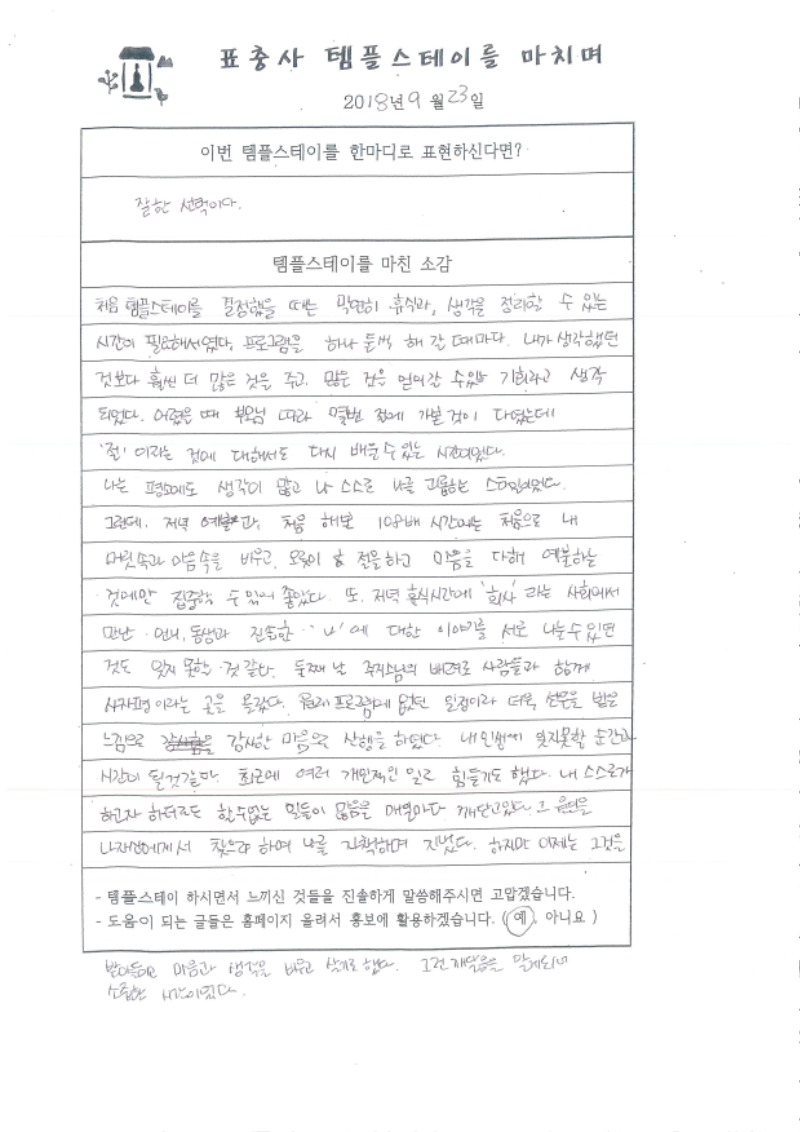 표충사 템플스테이를 마치며
2018년 9월 23일
이번 템플스테이를 한마디로 표현하신다면?
잘한 선택이다.
템플스테이를 마친 소감
처음 템플스테이를 결정했을 때는 막연히 휴식과, 생각을 정리할 수 있는
시간이 필요해서였다. 프로그램을 하나 둘씩 해 갈 때마다. 내가 생각했던
것보다 훨씬 더 많은 것을 주고, 많은 것을 얻어갈 수있는 기회라고 생각
되었다. 어렸을 때 부모님 따라 몇번 절에 가본 것이 다였는데
'절' 이라는 것에 대해서도 다시 배울수 있는 시간이었다.
나는 평소에도 생각이 많고 나 스스로 나를 괴롭히는 스타일이었다.
그런데, 저녁 예불과, 처음 해본 108배 시간에는 처음으로 내
머릿속과 마음속을 비우고, 오롯이 절을하고 마음을 다해 예불하는
것에만 집중할 수 있어 좋았다. 또, 저녁 휴식시간에 '회사' 라는 사회에서
만난 언니, 동생과 진솔한 '나'에 대한 이야기를 서로 나눌수 있던
것도 잊지 못할 것 같다. 둘째 날 주지스님의 배려로 사람들과 함께
사자평이라는 곳을 올랐다. 원래 프로그램에 없던 일정이라 더욱 선물을 받은
느낌으로 감사한 마음으로 산행을 하였다. 내 인생에 잊지못할 순간과
시간이 될것같다. 최근에 여러 개인적인 일로 힘들기도 했다. 내 스스로가
하고자 하더라도 할수없는 일들이 많음을 매일마다 깨닫고있다. 그 원인을
나자신에게서 찾으려 하며 나를 자책하며 지냈다. 하지만 이제는 그것을
- 템플스테이 하시면서 느끼신 것들을 진솔하게 말씀해주시면 고맙겠습니다.
- 도움이 되는 글들은 홈페이지 올려서 홍보에 활용하겠습니다. ( 예, 아니요 )
받아들이고 마음과 생각을 비우고 살기로 했다. 그런 깨달음을 알게되어
소중한 시간이었다.